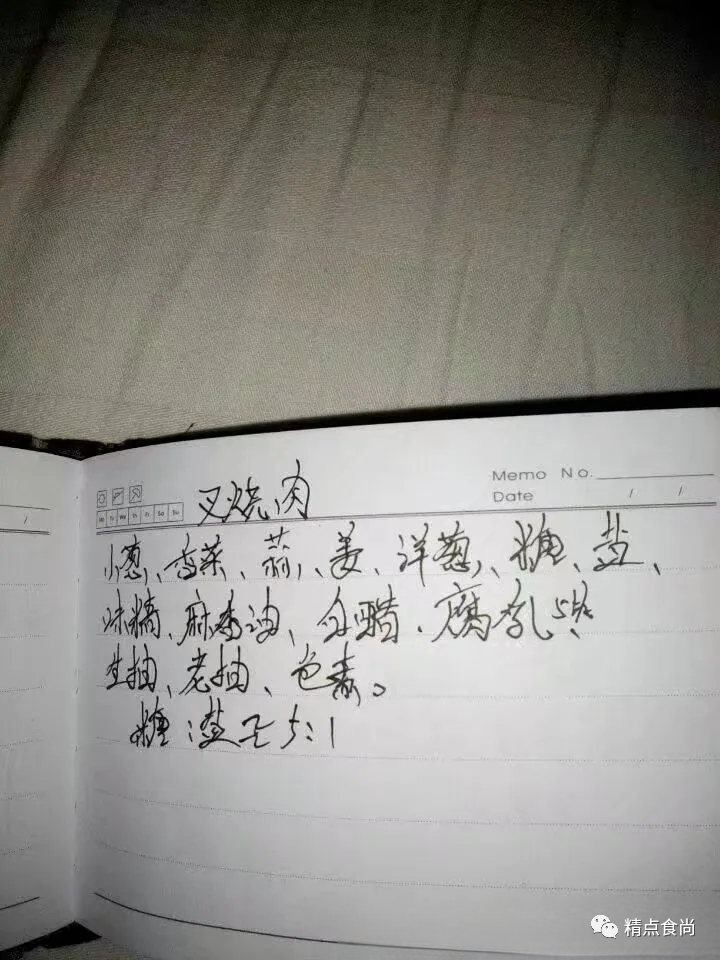 Memo No.
Date / /
Mo Tu We Th Fr Sa Su
叉烧肉
小葱、香菜、蒜、姜、洋葱、糖、盐、
味精、麻香油、白醋.腐乳5块
生抽、老抽、色素。
糖:盐=5:1
/
精点食尚